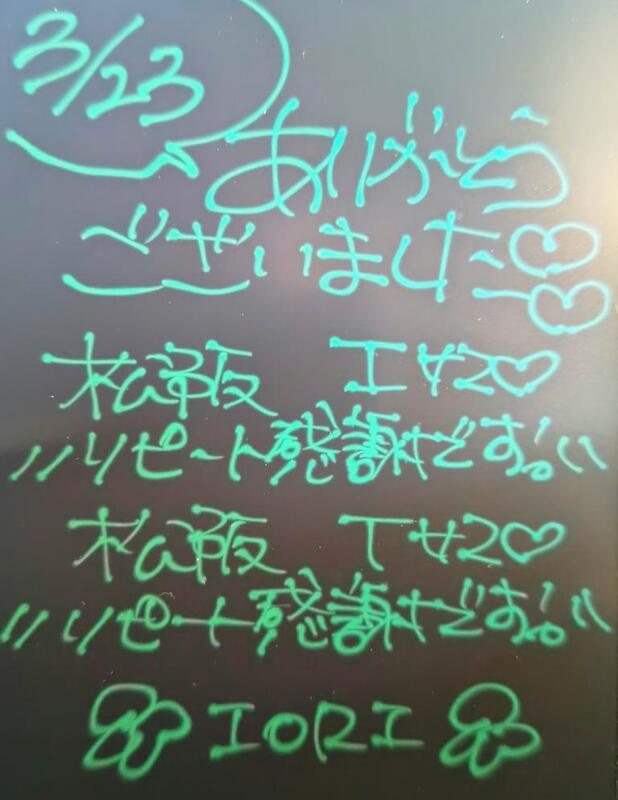 3/23
ありがとう
ございました♡♡
松阪 Iサン♡
〃リピート感謝です!!〃
松阪 Tサン♡
〃リピート感謝です!!〃
IORI